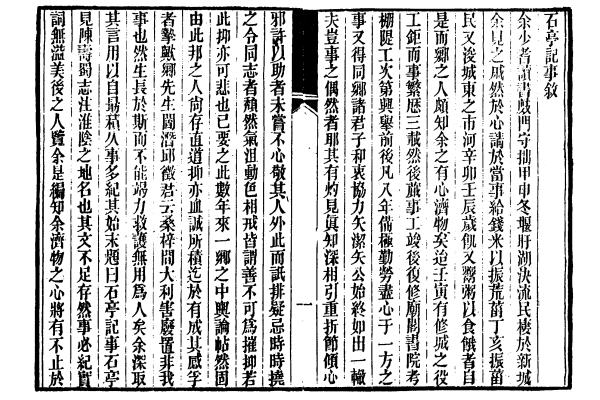 石亭記事敘
余少者讀書敱門守拙甲申冬堰圩湖決流民棲於新城
余見之戚然於心請於當事給錢米以振荒菑丁亥振菑
民又浚城東之市河辛卯壬辰歲飢又鬻粥以食餓者自
是而鄉之人頗知余之有心濟物矣迨壬寅有修城之役
工鉅而事繁歷三載然後蕆事工竣後復修廟閣書院考
棚隄工次第興舉前後凡八年備極勤勞盡心于一方之
事又得同鄉諸君子和衷協力矢潔矢公始終如出一轍
夫豈事之偶然者那其有灼見眞知深相引重折節傾心
邪許以助者未嘗不心敬其人外此而詆排疑忌時時撓
之令同志者頹然氣沮動色相戒皆謂善不可爲摧抑若
此抑亦可悲也已要之此數年來一鄉之中輿論帖然固
由此邦之人尙存直道抑亦血誠所積迄於有成其感孚
者摯歟鄉先生閻潛邱徵君云桑梓間大利害廢置非我
事也然生長於斯而不能竭力救護無用爲人矣余深取
其言用以自勗積久事多紀其始末題曰石亭記事石亭
見陳壽蜀志注淮陰之地名也其文不足存然事必紀實
詞無溢美後之人覽余是編知余濟物之心將有不止於
一